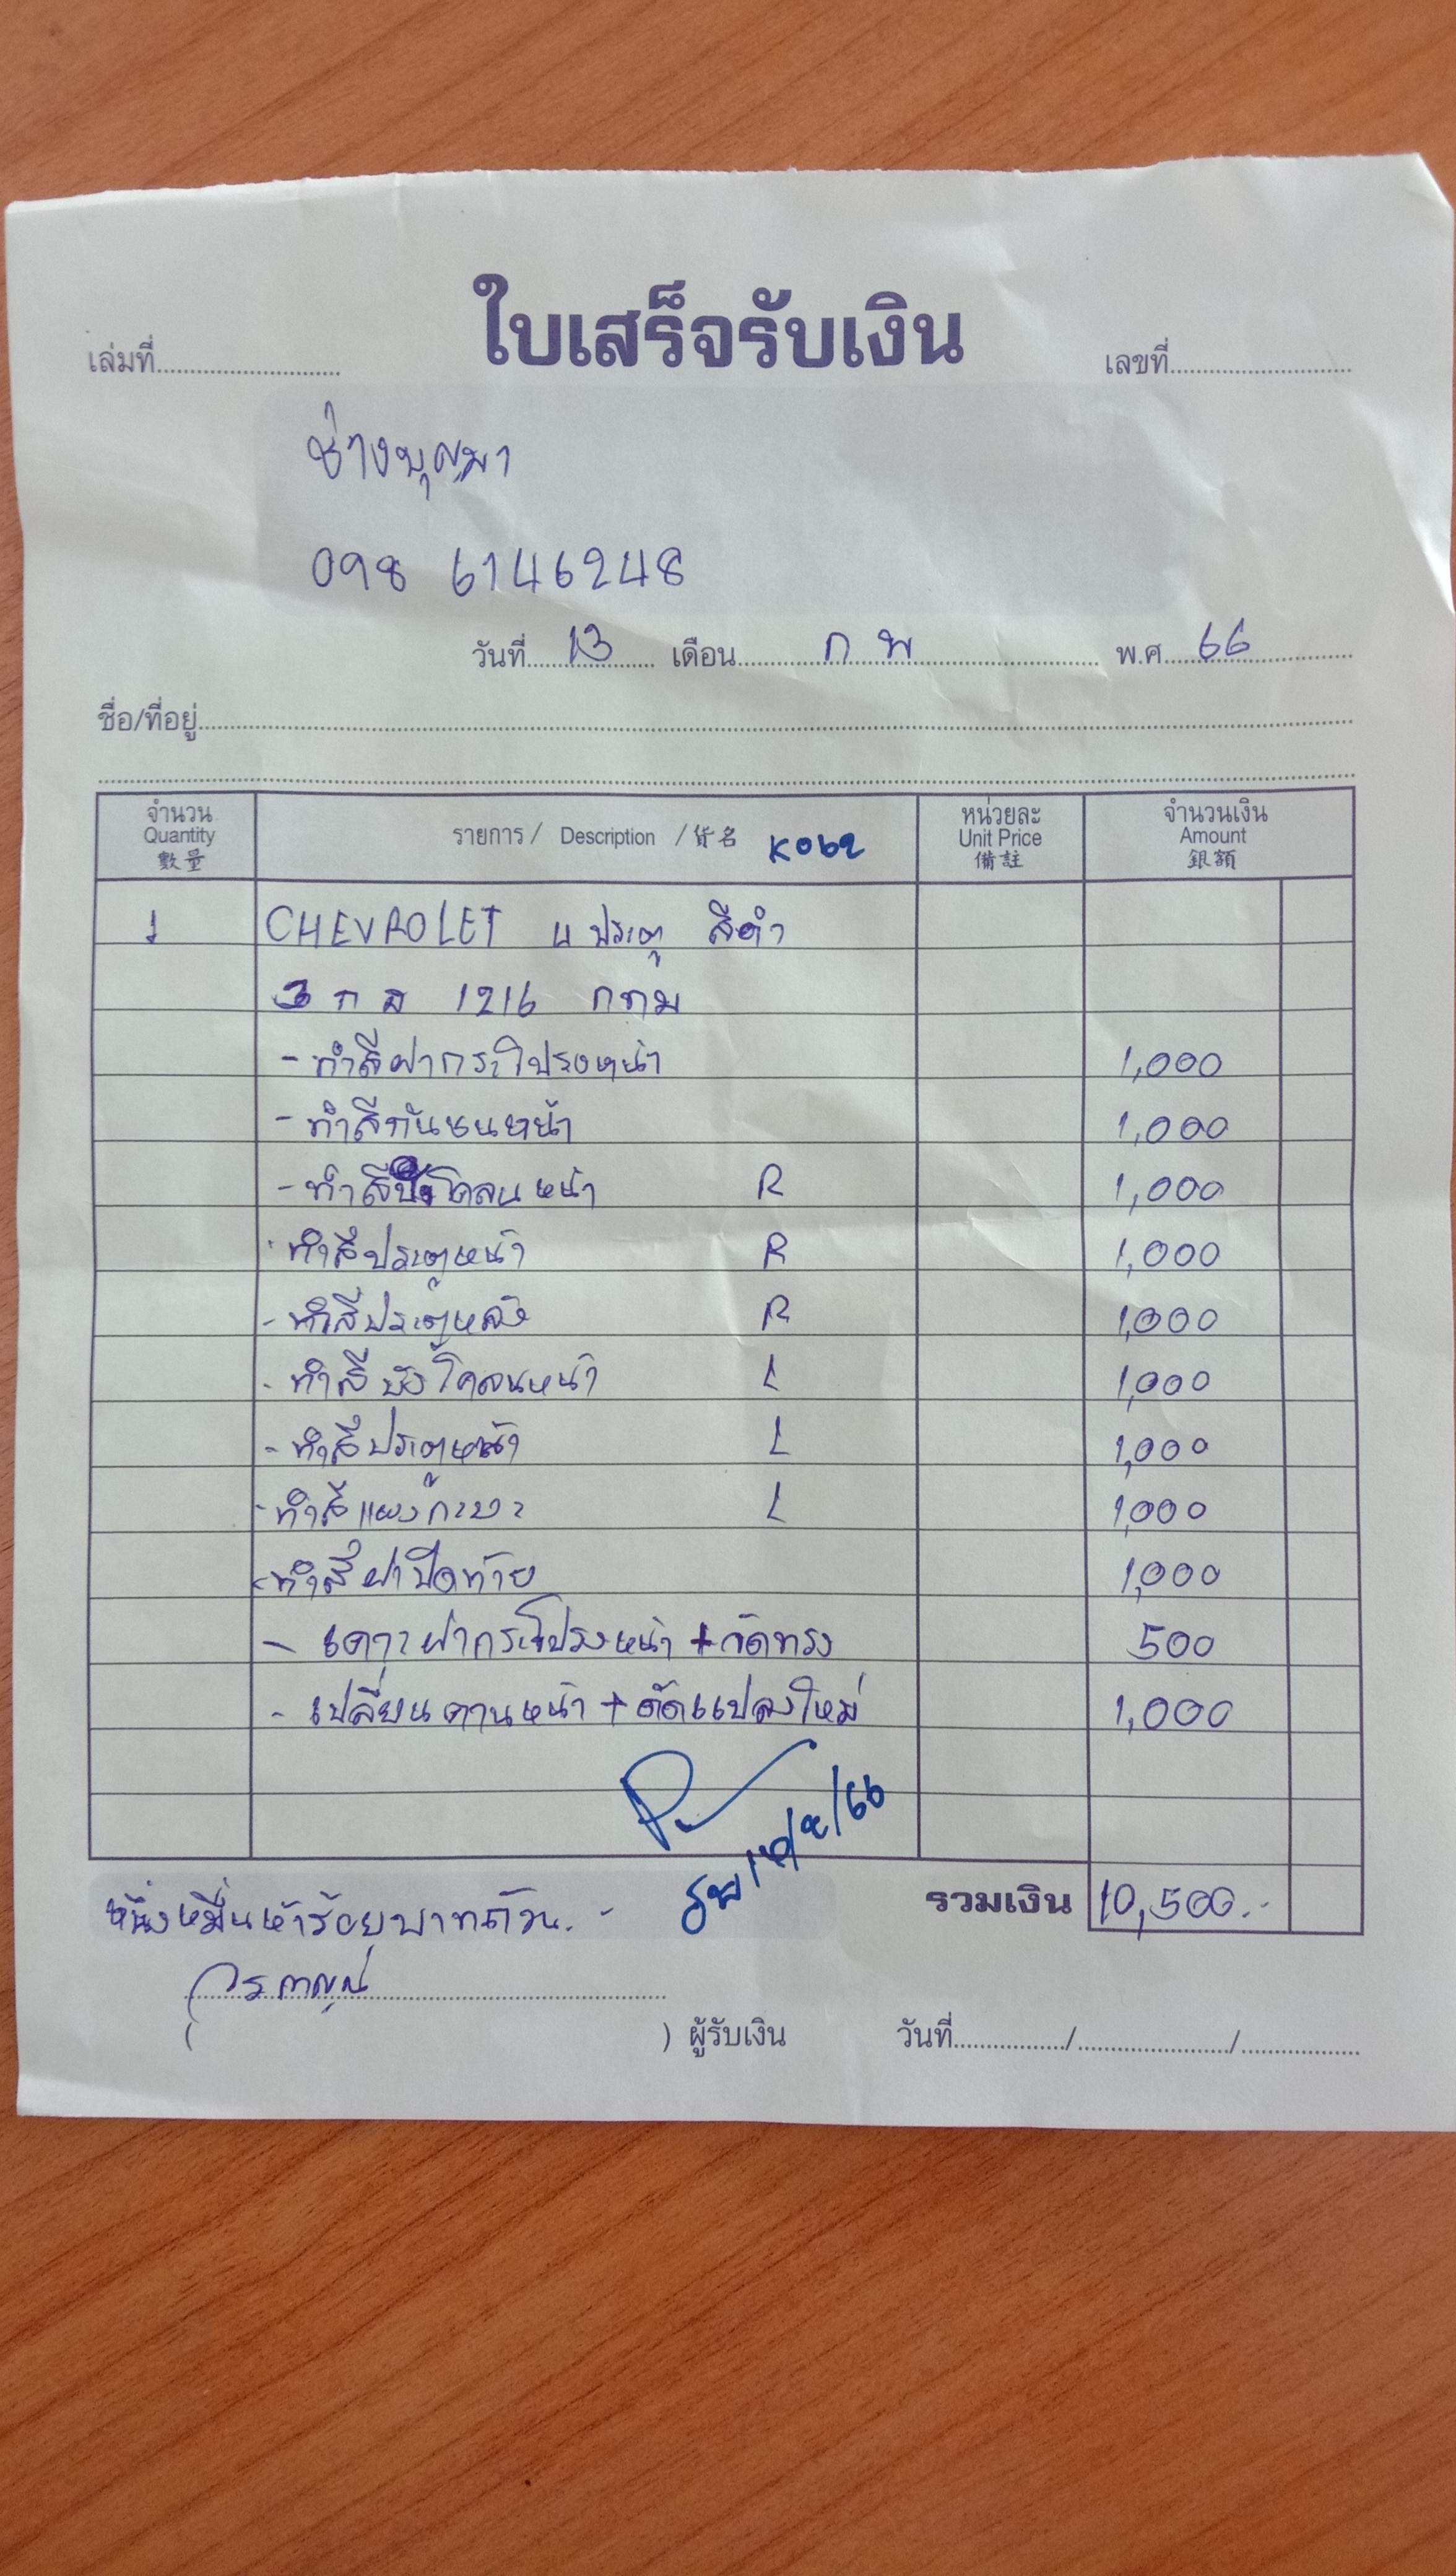 ใบเสร็จรับเงิน
เล่มที่
เลขที่
ช่างบุญมา
098 6146248
วันที่ 13 เดือน ก พ พ.ศ. 66
ชื่อ/ที่อยู่
จำนวน รายการ / Description / 貨名 หน่วยละ จำนวนเงิน
Quantity Unit Price Amount
數量 備註 銀額
1 CHEVROLET 4 ประตู สีดำ
1216 กทม
- ทำสีฝากระโปรงหน้า 1,000
- ทำสีกันชนหน้า 1,000
- ทำสีบังโคลนหน้า R 1,000
- ทำสีประตูหน้า R 1,000
- ทำสีประตูหลัง R 1,000
- ทำสีบังโคลนหน้า L 1,000
- ทำสีประตูหน้า L 1,000
- ทำสีแผงกะบะ L 1,000
- ทำสีฝาปิดท้าย 1,000
- เคาะฝากระโปรงหน้า + จัดทรง 500
- เปลี่ยนคานหน้า + ดัดแปลงใหม่ 1,000
หนึ่งหมื่นห้าร้อยบาทถ้วน.- รวมเงิน 10,500.-
( ) ผู้รับเงิน วันที่ / /